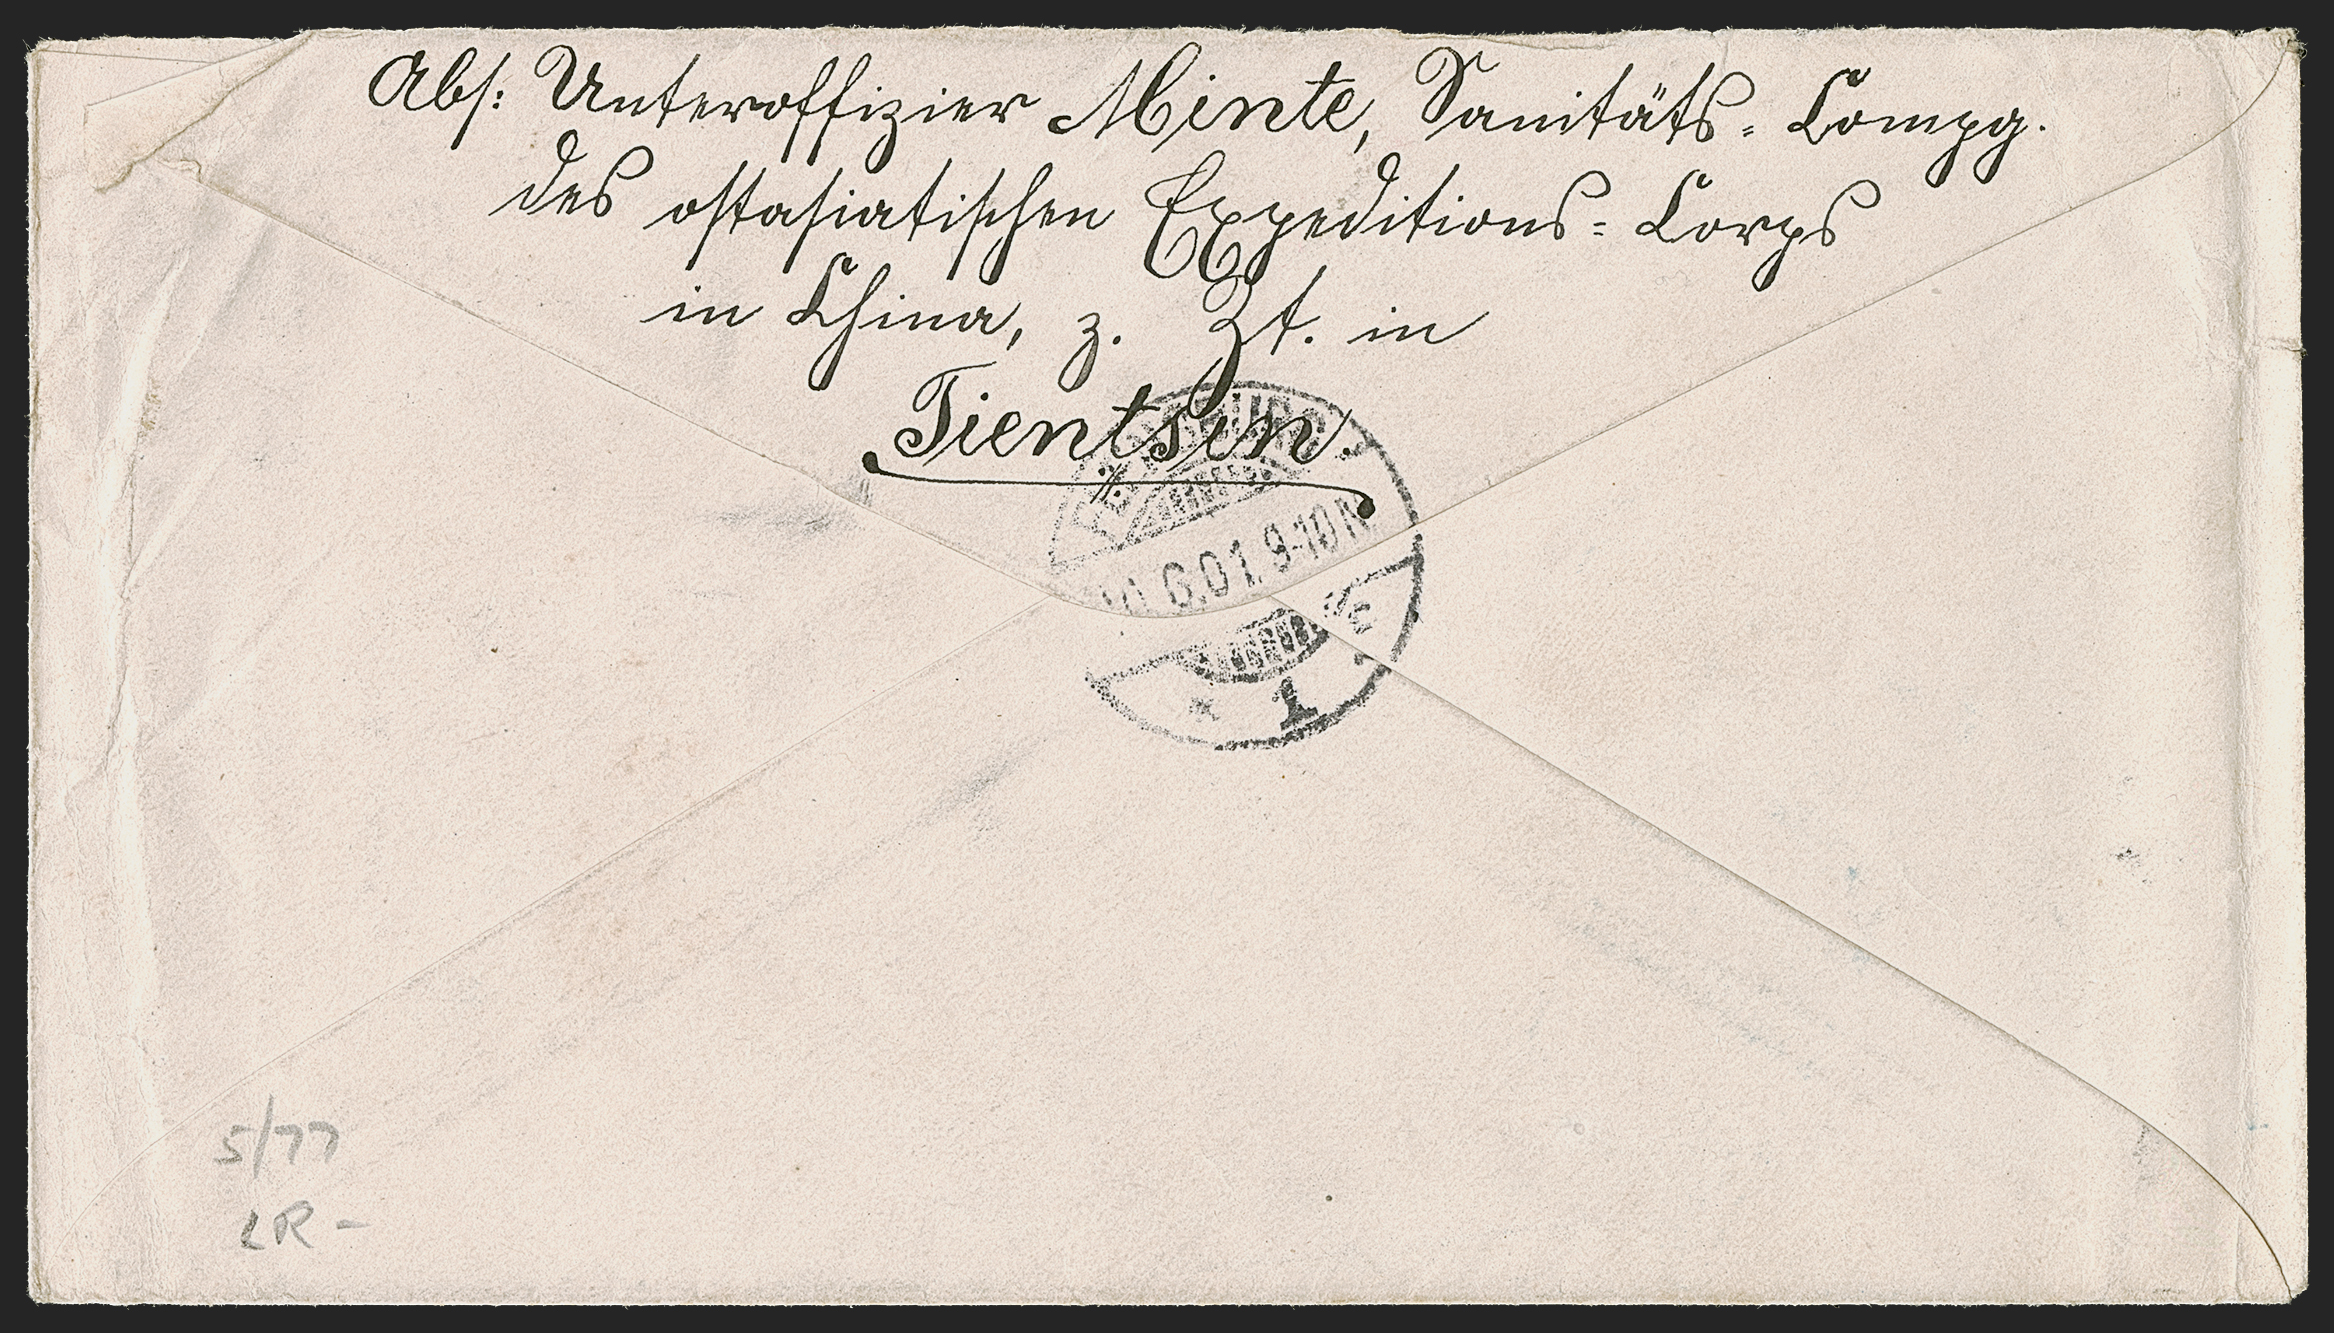 Abs: Unteroffizier Minte, Sanitäts-Compg.
des ostasiatischen Expeditions-Corps
in China, z. Zt. in
Tientsin.
6.01. 9-10 N
* 1
5/77
LR -